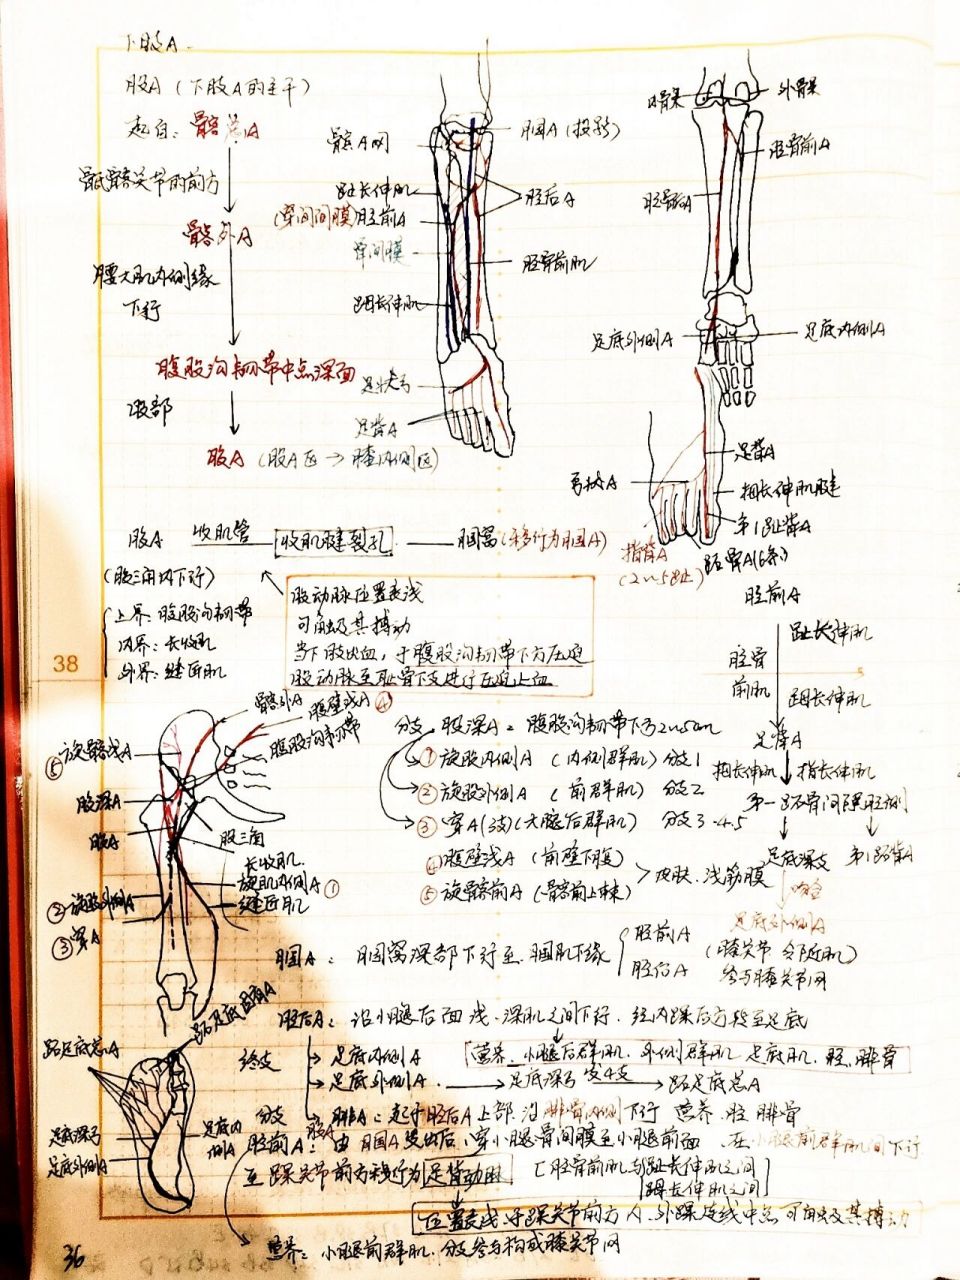 下肢A.
股A（下肢A的主干）
起自：髂总A
骶髂关节的前方
髂外A
腰大肌内侧缘
下行
腹股沟韧带中点深面
股部
股A（股A区→膝内侧区）
髌A网
趾长伸肌
(穿间间膜)胫前A
骨间膜
𧿹长伸肌
足背A
腘A（投影）
胫后A
胫骨前肌
外骨果
胫骨前A
足底外侧A
足底内侧A
足背A
弓状A
拇长伸肌腱
第1趾背A
股A 收肌管 收肌腱裂孔 腘窝(移行为腘A)
(股三角内下行)
上界：腹股沟韧带
内界：长收肌
外界：缝匠肌
股动脉位置表浅
可触及其搏动
当下肢出血，于腹股沟韧带下方压迫
股动脉至耻骨下支进行压迫止血
38
趾背A
(2~5趾)
胫前A
趾长伸肌
胫骨
前肌
足背A
足底深支
足底外侧A
髂外A
腹壁浅A ④
腹股沟韧带
⑤旋髂浅A
股深A
股A
股三角
长收肌
旋肌内侧A ①
缝匠肌
②旋股外侧A
③穿A
分支 股深A：腹股沟韧带下方2~5cm
①旋股内侧A（内侧群肌）分支1
②旋股外侧A（前群肌）分支2
③穿A(3支)(大腿后群肌) 分支3.4.5
④腹壁浅A（前壁下腹）
⑤旋髂前A（髂前上棘）
皮肤.浅筋膜
腘A：腘窝深部下行至 腘肌下缘
胫前A
胫后A
(膝关节 邻近肌)
参与膝关节网
胫后A：沿小腿后面浅、深肌之间下行，经内踝后方移至足底
终支
足底内侧A
足底外侧A. 足底深弓 发4支 跖足底总A
营养.小腿后群肌.外侧群肌 足底肌.胫.腓骨
分支
腓A：起于胫后A上部 沿腓骨内侧下行 营养.胫 腓骨
胫前A：由腘A发出后，穿小腿骨间膜至小腿前面 在小腿前群肌间下行
至踝关节前方移行为足背动脉
[胫骨前肌与趾长伸肌之间
𧿹长伸肌之间]
位置表浅，于踝关节前方 内.外踝连线中点 可触及其搏动
营养：小腿前群肌.分支参与构成膝关节网
跖足底总A
足底深弓
足底外侧A
足底内侧A
36